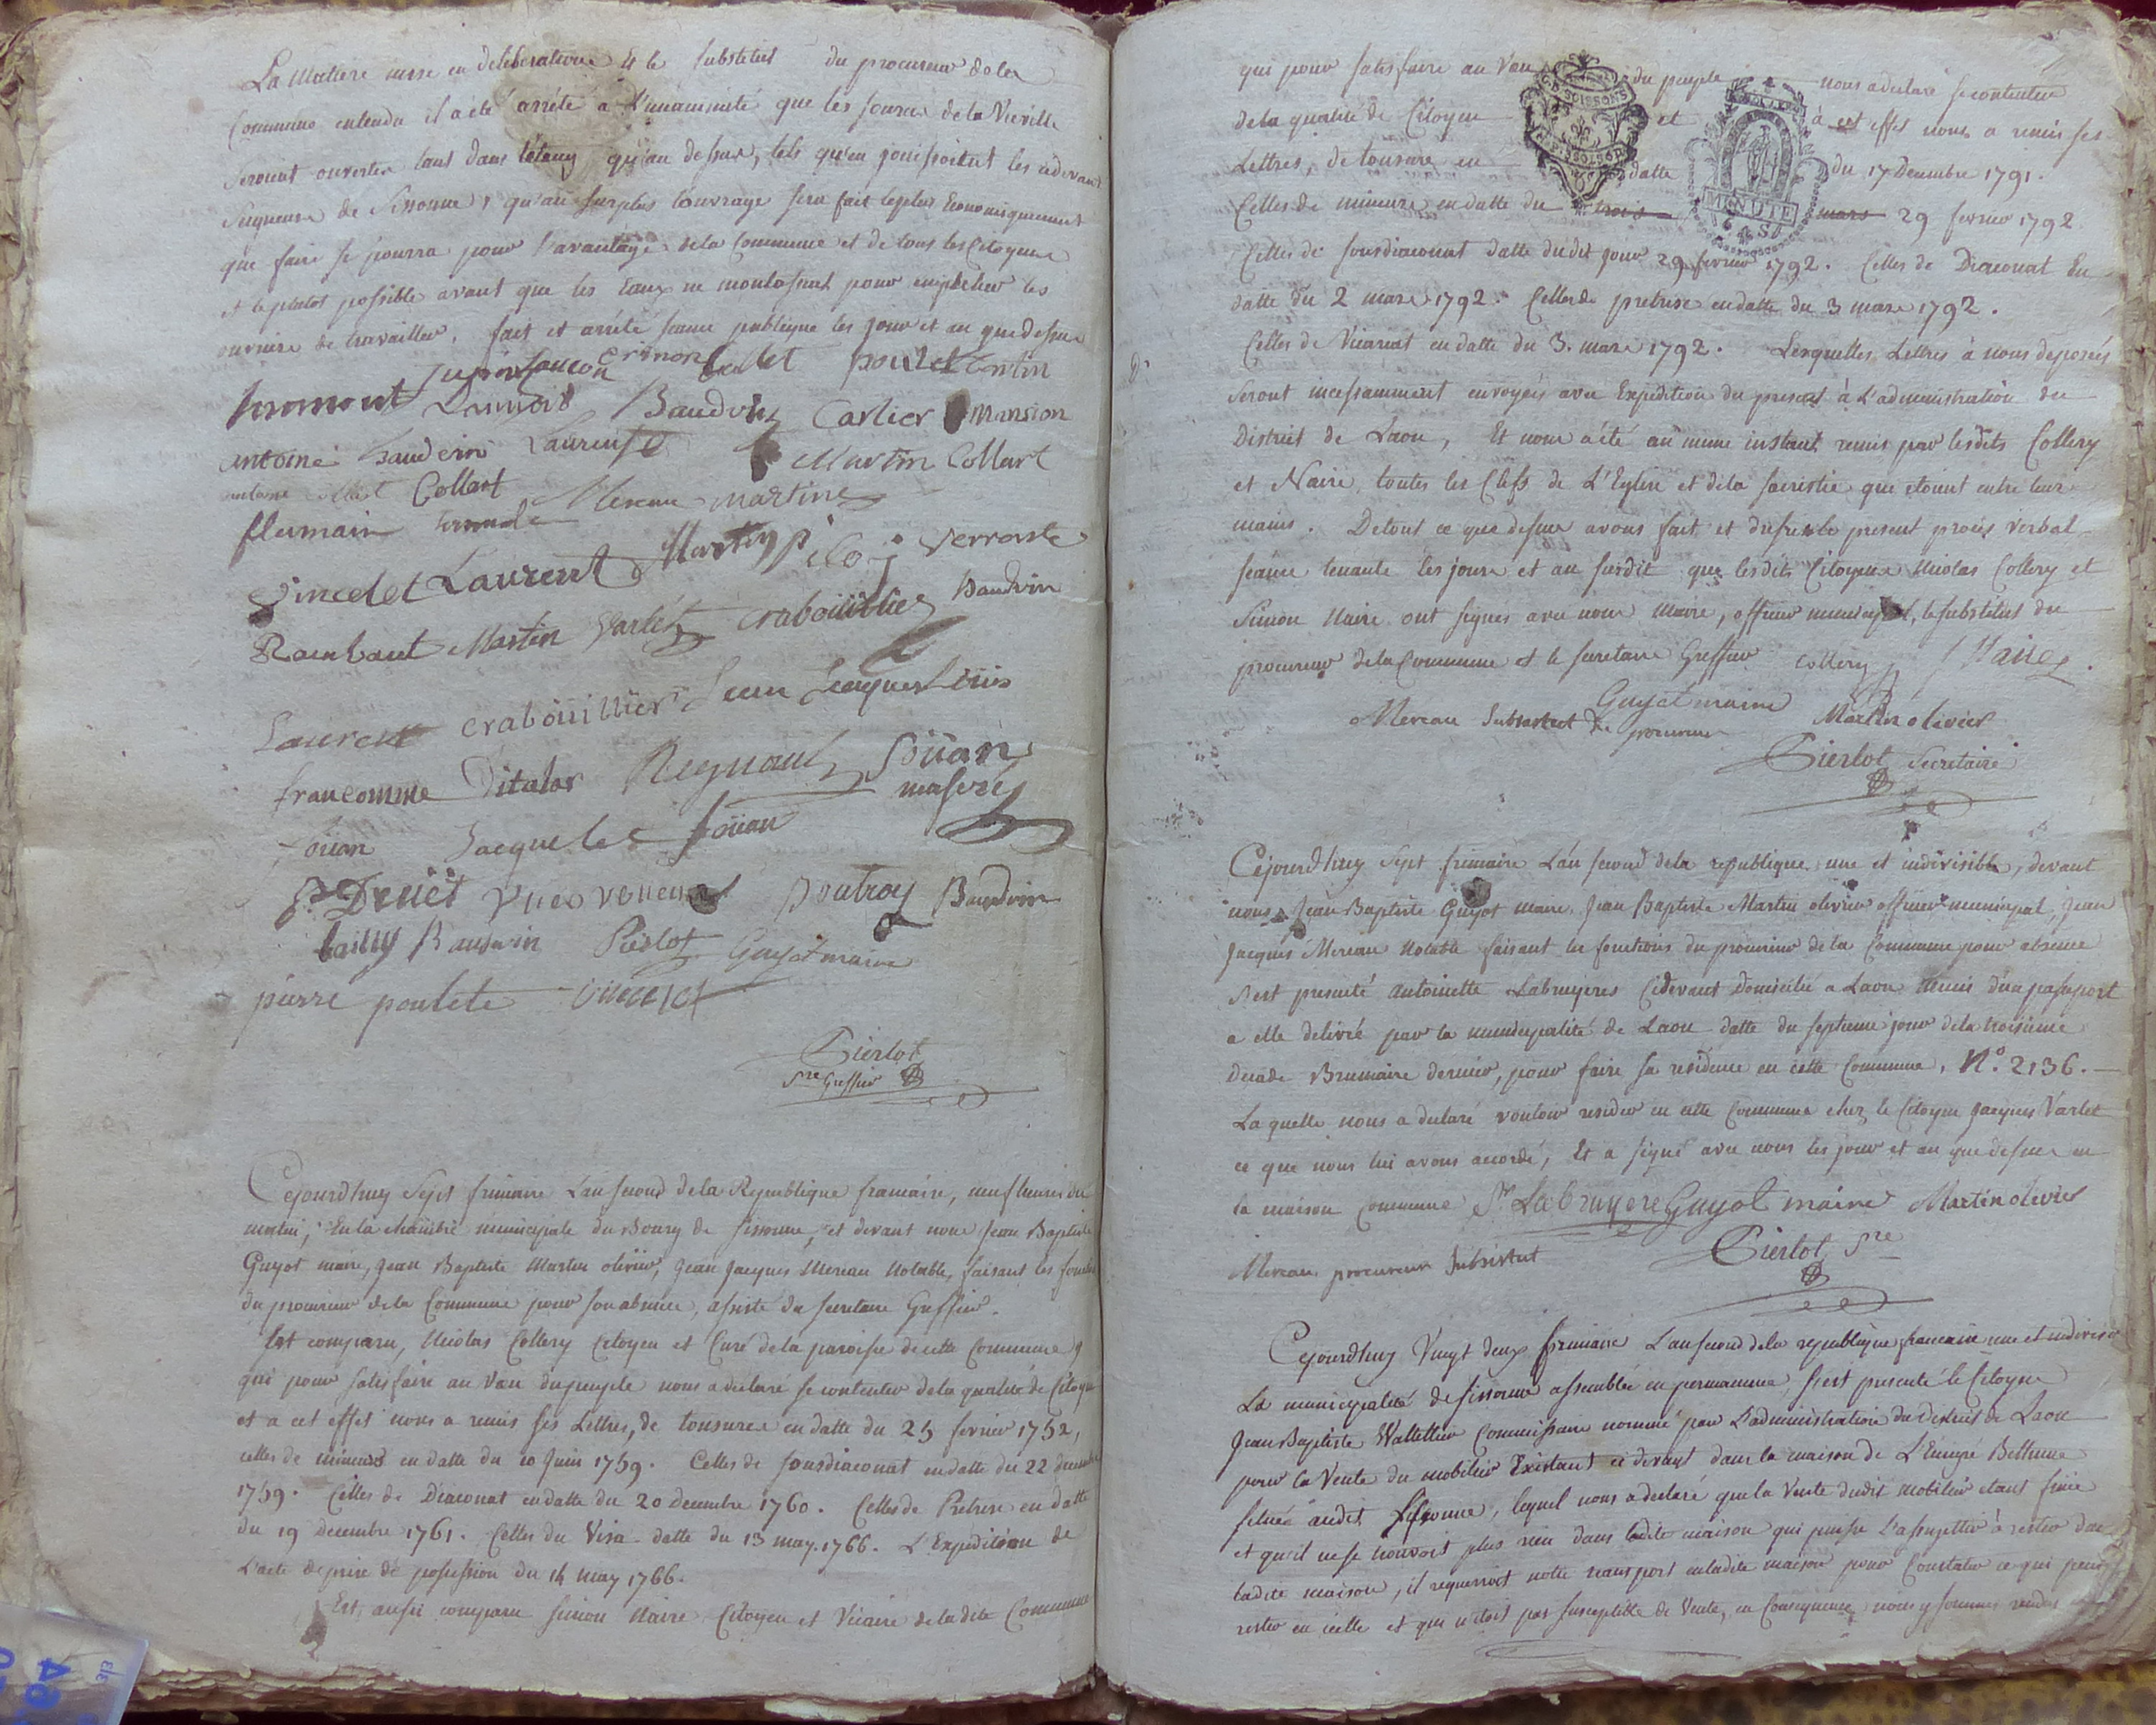 La Matiere mise en deliberation et le substitut du procureur de la
Commune entendu il a été arrêté a L'unanimité que les sources de la Vieville
seroient ouvertes tout dans letang qu'au dessus, tels qu'en jouissoient les cidevant
seigneurs de Sissonne, qu'au surplus l'ouvrage sera fait le plus Economiquement
que faire se pourra pour l'avantage de la Commune et de tous les Citoyens
et le plutot possible avant que les Eaux ne montassent pour empecher les
ouvriers de travailler. fait et arrêté seance publique les jour et an que dessus
fromont Lannois crinon Collet poulet
Baudoin Carlier Mansion
antoine baudoin Laurent Martin Collart
Collart Mereau martine
flumain
Vincelet Laurent Martin piloj verroste
Raenbaut Martin Varlet craboüillier Baudvin
Laurent craboüillier Jean Jacques Loüis
francomme Ditalos Regnault foüan
maseré
foüan Jacque le foüan
P. Druët Yves veneur Poutroy Baudvin
bailly Baudvin Pierlot Guyot maire
pierre poulete vincelet
Pierlot
Sre Greffier
Cejourdhuy Sept frimaire L'an second de la Republique francaise, neuf heures du
matin, En la chambre municipale du Bourg de sissonne, et devant nous Jean Baptiste
Guyot maire, Jean Baptiste Martin olivier, Jean Jacques Mereau Notable, faisant les fonctions
du procureur de la Commune pour son absence, assisté du secretaire Greffier.
Est comparu, Nicolas Collery Citoyen et Curé de la paroisse de cette Commune
qui pour satisfaire au Vœu du peuple nous a declaré se contenter de la qualité de Citoyen
et a cet effet nous a remis ses Lettres, de tonsure en datte du 25 fevrier 1752,
celles de mineurs en datte du 10 Juin 1759. Celles de sousdiaconat en datte du 22 decembre
1759. Celles de Diaconat en datte du 20 decembre 1760. Celles de Pretrise en datte
du 19 decembre 1761. Celles du Visa datte du 13 may 1766. L'Expedition de
L'acte de prise de possession du 14 may 1766.
Est aussi comparu simon Naire Citoyen et Vicaire de la dite Commune
qui pour satisfaire au Vœu du peuple nous a declaré se contenter
de la qualité de Citoyen et à cet effet nous a remis ses
Lettres, de tonsure en datte du 17 Decembre 1791.
Celles de mineurs en datte du trois mars 29 fevrier 1792
SOISSONS
MINUTE
6 S.
Celles de sousdiaconat datte du dit jour 29 fevrier 1792. Celles de Diaconat En
datte du 2 mars 1792. Celles de pretrise en datte du 3 mars 1792.
Celles de Vicariat en datte du 3. mars 1792. Lesquelles Lettres à nous deposées
seront incessamment envoyés avec Expedition du present à L'administration du
District de Laon, Et nous a été au meme instant remis par lesdits Collery
et Naire toutes les Clefs de L'Eglise et de la sacristie qui etoient entre leurs
mains. De tout ce que dessus avons fait et dressé le present procès verbal
séance tenante les jours et an susdit que lesdits Citoyens Nicolas Collery et
Simon Naire ont signés avec nous maire, officier municipal, le substitut du
procureur de la Commune et le secretaire Greffier Collery S Naire.
Guyot maire
Mereau substitut de procureur Martin olivier
Pierlot Secretaire
Cejourdhuy Sept frimaire L'an second de la republique une et indivisible, devant
nous Jean Baptiste Guyot maire Jean Baptiste Martin olivier officier municipal, Jean
Jacques Mereau Notable faisant les fonctions du procureur de la Commune pour absence
s'est presenté antoinette Labruyeres Cidevant Domiciliée a Laon munie d'un passeport
a elle delivré par la municipalité de Laon datte du septieme jour de la troisieme
decade Brumaire dernier, pour faire sa residence en cette Commune, N.º 2136.
Laquelle nous a declaré vouloir resider en cette Commune chez le Citoyen Jacques Varlet
ce que nous lui avons accordé, Et a signé avec nous les jour et an que dessus en
la maison Commune Labruyere Guyot maire Martin olivier
Mereau procureur substitut Pierlot Sre
Cejourdhuy Vingt deux frimaire L'an second de la republique francaise une et indivisi
La municipalité de sissonne assemblée en permanence, s'est presenté le Citoyen
Jean Baptiste Wattellier Commissaire nommé par L'administration du district de Laon
pour la Vente du mobilier Existant ci devant dans la maison de L'Emigré Bethune
située audit Sissonne, lequel nous a declaré que la Vente dudit mobilier etant finie
et qu'il ne se trouvoit plus rien dans ladite maison qui puisse l'assujettir à rester dans
ladite maison, il requerroit notre transport en ladite maison pour Constater ce qui peut
rester en icelle et qui n'etoit pas susceptible de Vente, en Consequence nous y sommes rendus